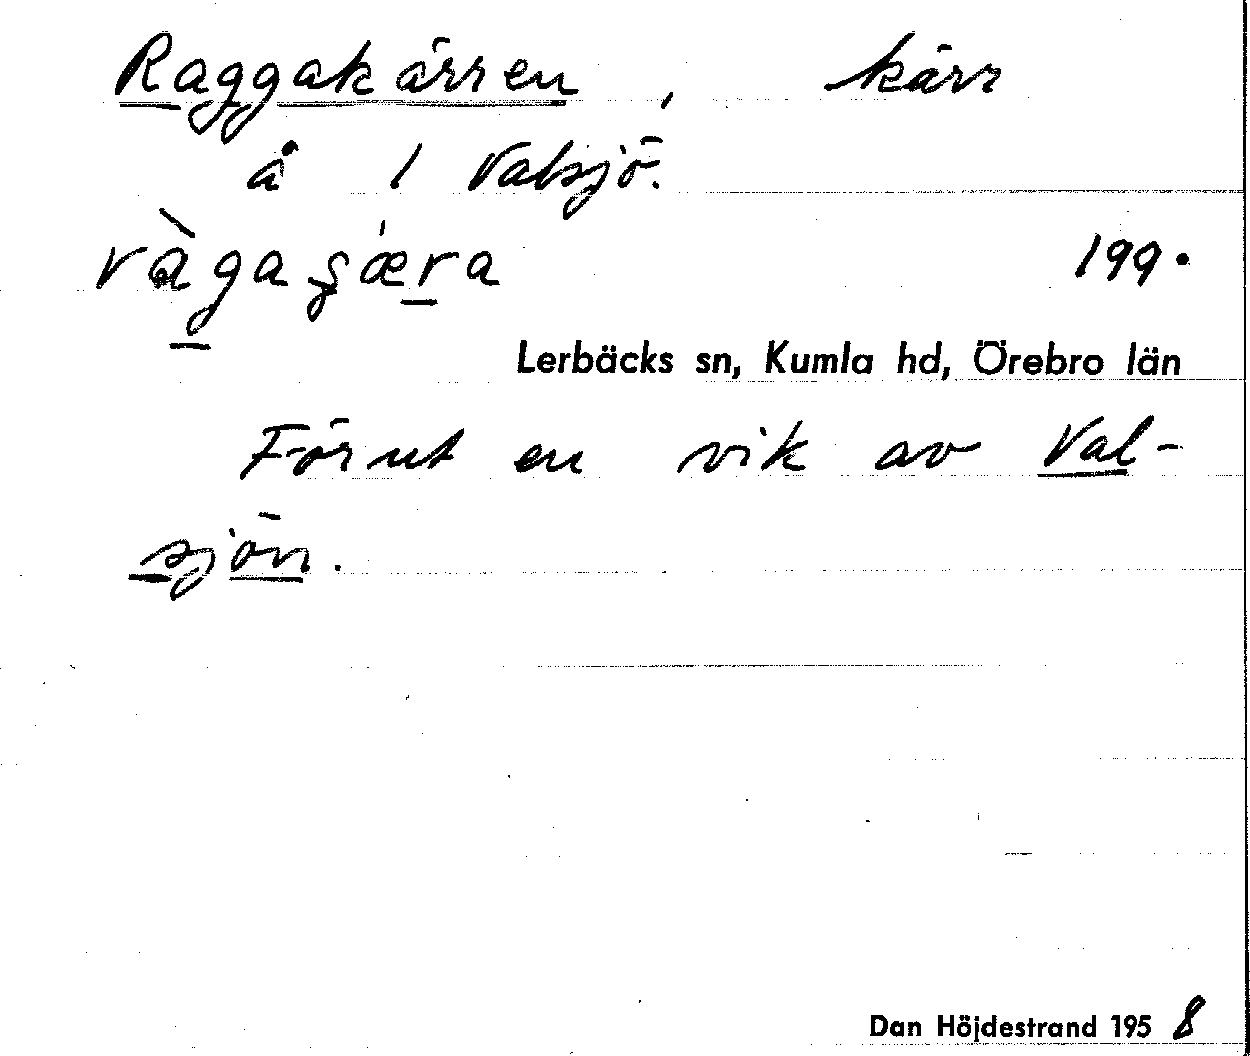 Raggakärren, kärr
å 1 Valsjö.
ràgaʂǽra 199.
Lerbäcks sn, Kumla hd, Örebro län
Förut en vik av Val-
sjön.
Dan Höjdestrand 1958